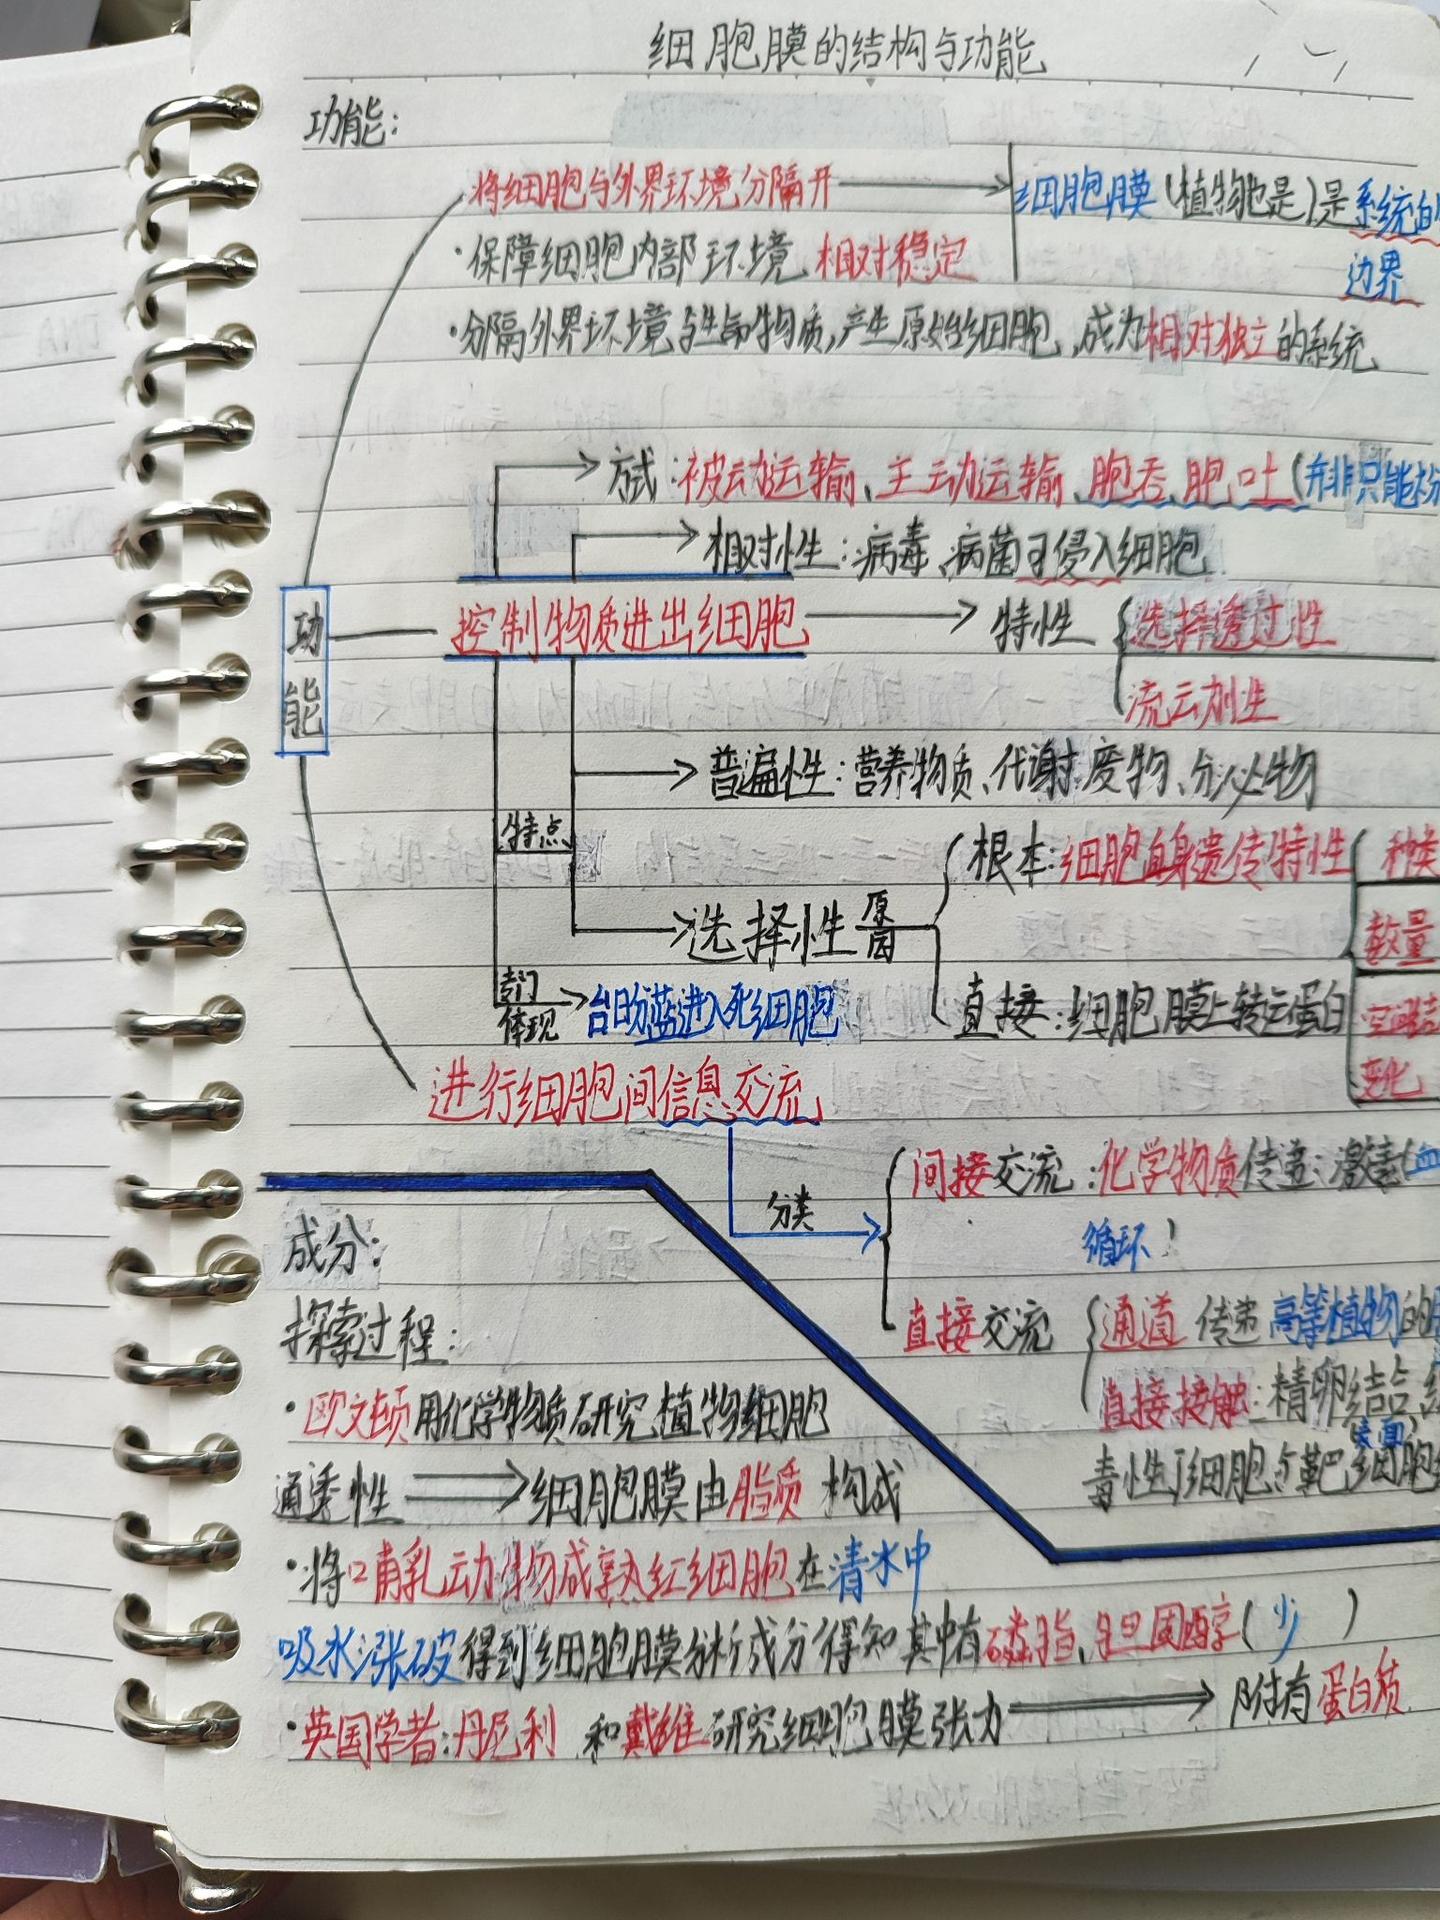 细胞膜的结构与功能
功能:
将细胞与外界环境分隔开
细胞膜(植物也是)是系统的
边界
·保障细胞内部环境相对稳定
·分隔外界环境与生命物质,产生原始细胞,成为相对独立的系统
方式:被动运输、主动运输、胞吞、胞吐(并非只能
相对性:病毒、病菌可侵入细胞
功能
控制物质进出细胞
特性
选择透过性
流动性
普遍性:营养物质、代谢废物、分泌物
特点
选择性
原因
根本:细胞自身遗传特性
直接:细胞膜上转运蛋白
种类
数量
空间结
变化
专门体现
台盼蓝进入死细胞
进行细胞间信息交流
分类
间接交流:化学物质传递:激素(血
循环)
直接交流
通道 传递 高等植物的
直接接触:精卵结合
表面
毒性T细胞与靶细胞
成分:
探索过程:
·欧文顿用化学物质研究植物细胞
通透性 细胞膜由脂质构成
·将哺乳动物成熟红细胞在清水中
吸水涨破得到细胞膜分析成分得知其中有磷脂、胆固醇(少)
·英国学者:丹尼利和戴维研究细胞膜张力
附有蛋白质